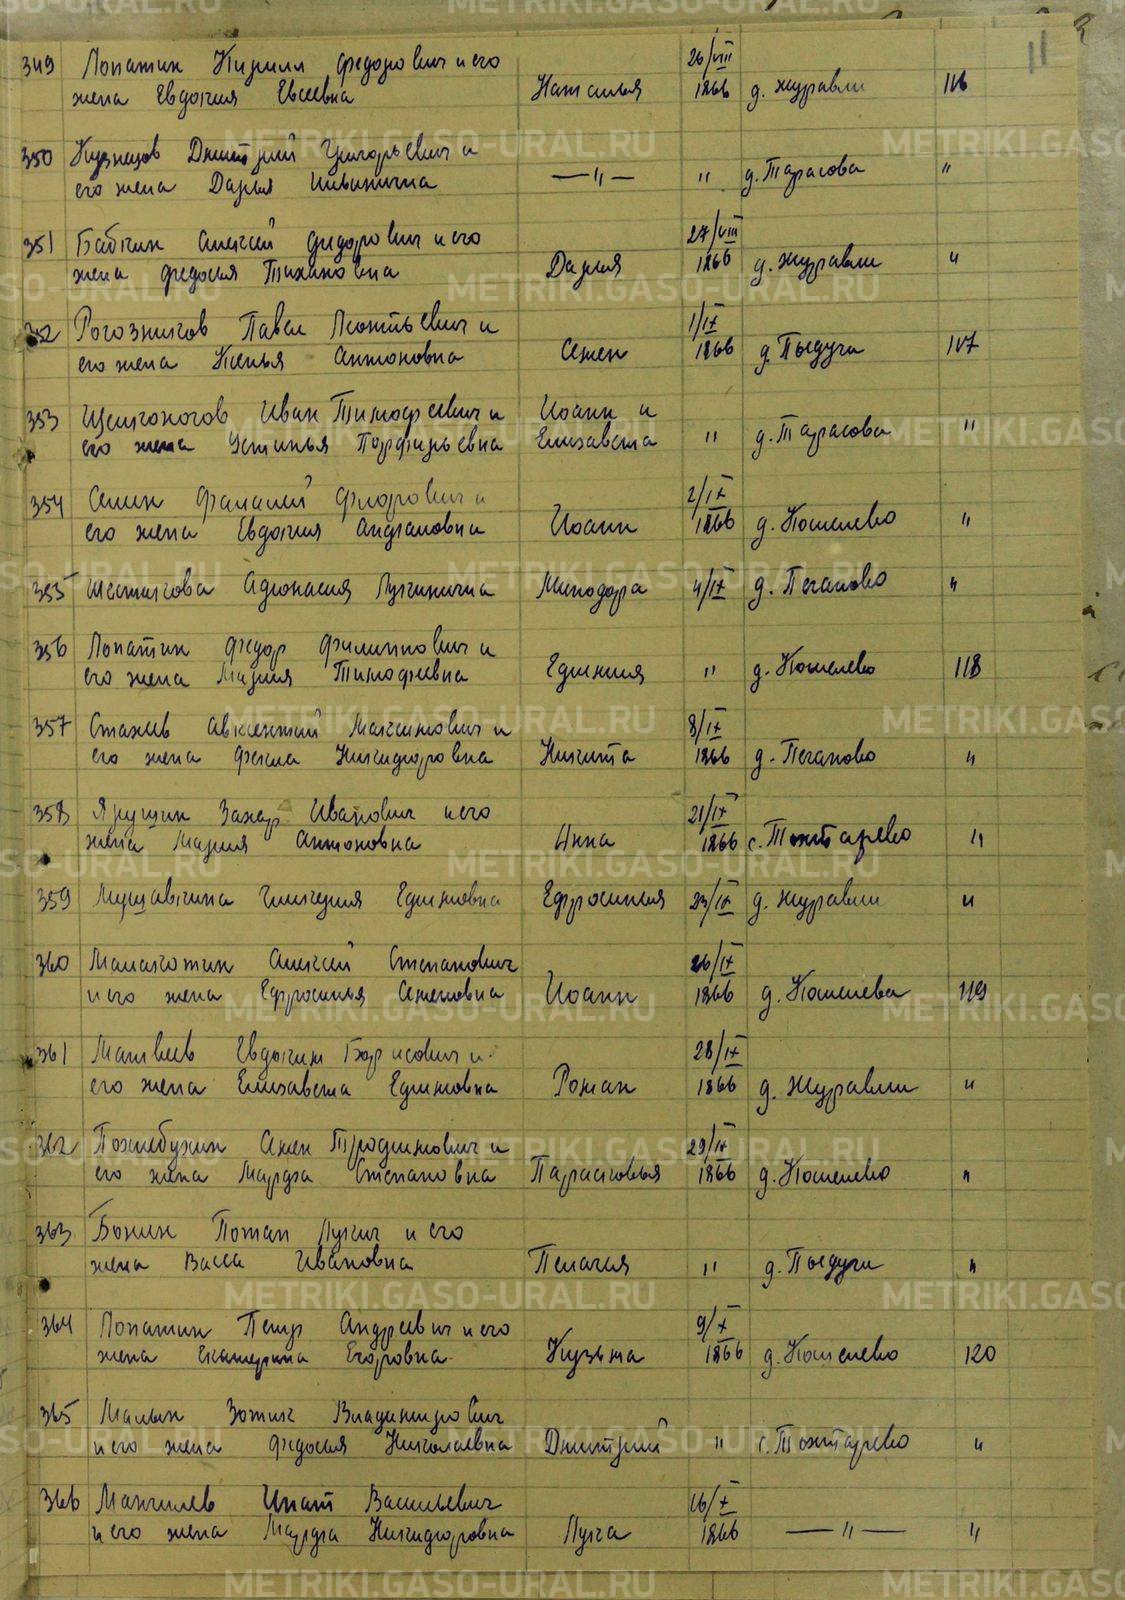 11
349 Лопатин Кирилл Федорович и его
жена Евдокия Евсеевна Наталья 26/VIII 1866 д. Журавли 116
350 Кузнецов Дмитрий Григорьевич и
его жена Дарья — " — " д. Тарасова "
351 Бабкин Алексей Федорович и его
жена Федосья Тихановна Дарья 27/VIII 1866 д. Журавли "
352 Рогозников Павел Леонтьевич и
его жена Ксенья Антоновна Семен 1/IX 1866 д. Пыдуги 117
353 Щелконогов Иван Тимофеевич и Иоанн и
его жена Устинья Порфирьевна Елизавета " д. Тарасова "
354 Семин
его жена Евдокия Андреановна Иоанн 2/IX 1866 д. Кошелево "
355 Шестакова Афонасия Лукинична Минодора 4/IX д. Пеганово "
356 Лопатин Федор Филиппович и
его жена Мария Тимофеевна Ефимия " д. Кошелево 118
357 Стахев Авксентий Максимович и
его жена Фекла Никифоровна Никита 8/IX 1866 д. Пеганово "
358 Ярушин Захар Иванович и его
жена Мария Антоновна Анна 21/IX 1866 с. Тохтарево "
359 Гликерия Ефимовна Ефросинья 23/IX д. Журавли "
360 Малахотин Алексей Степанович
и его жена Ефросинья Семеновна Иоанн 26/IX 1866 д. Кошелева 119
361 Матвеев Евдоким Борисович и
его жена Елизавета Ефимовна Роман 28/IX 1866 д. Журавли "
362 Семен Трофимович и
его жена Марфа Степановна Парасковья 29/IX 1866 д. Кошелево "
363 Бонин Потап Лукич и его
жена Васса Ивановна Пелагея " д. Пыдуги "
364 Лопатин Петр Андреевич и его
жена Екатерина Егоровна Кузьма 9/X 1866 д. Кошелево 120
365 Малых Зотик Владимирович
и его жена Федосья Николаевна Дмитрий " с. Тохтарево "
366 Ипат Васильевич
и его жена Марфа Никифоровна Лука 16/X 1866 — " — "
METRIKI.GASO-URAL.RU